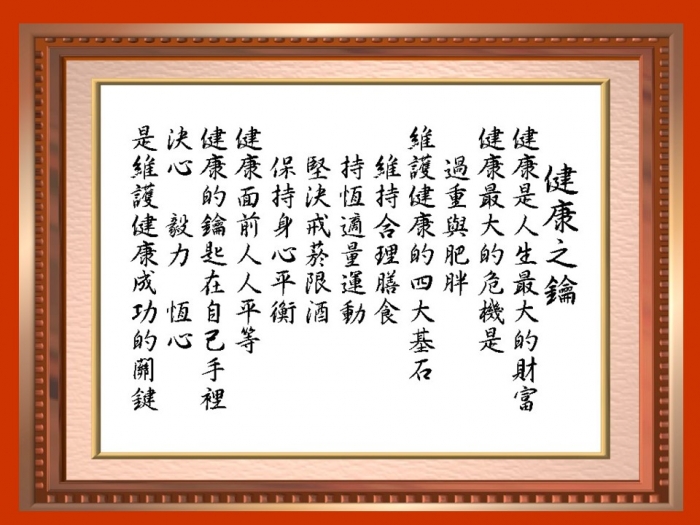 健康之鑰
健康是人生最大的財富
健康最大的危機是
過重與肥胖
維護健康的四大基石
維持合理膳食
持恆適量運動
堅決戒菸限酒
保持身心平衡
健康面前人人平等
健康的鑰匙在自己手裡
決心 毅力 恆心
是維護健康成功的關鍵